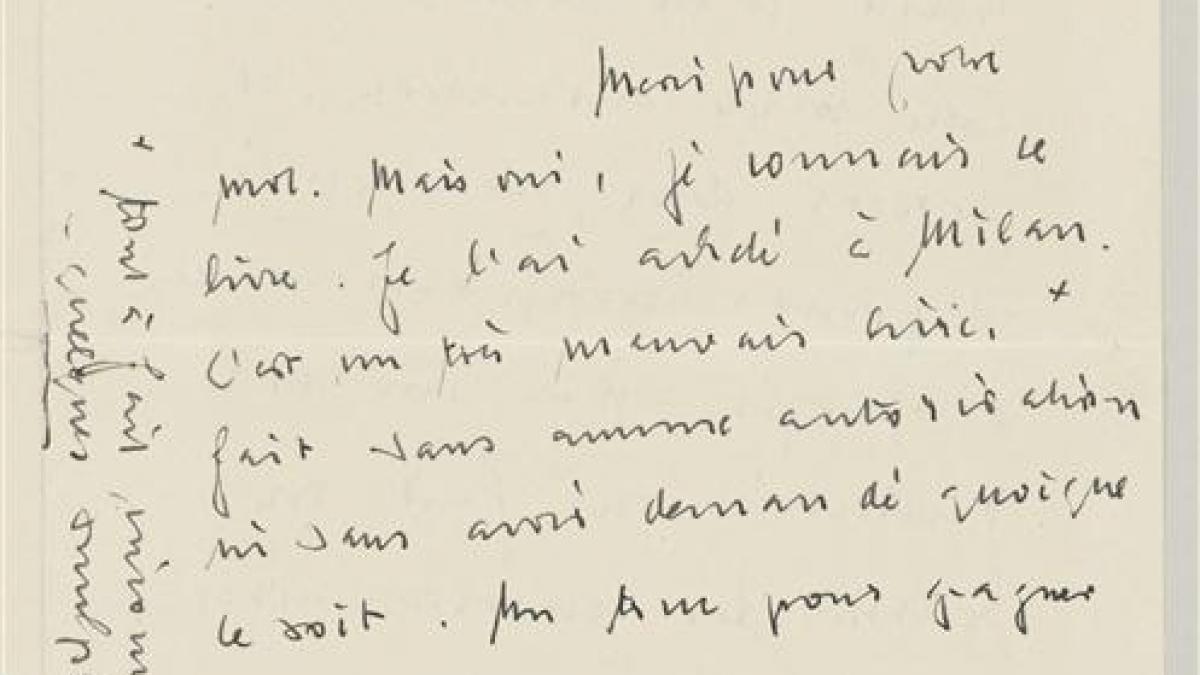 Merci pour votre
mot. Mais oui, je connais ce
livre. Je l'ai acheté à Milan.
C'est un très mauvais livre. +
fait sans aucune autorisation
ni sans avoir demandé quoique
ce soit. Un truc pour gagner